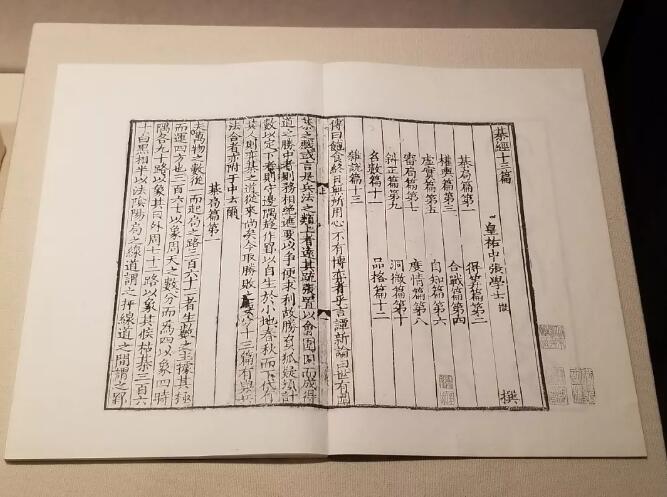 棊經十三篇
皇祐中張學士 撰
棊局篇第一 得筭篇第二
權輿篇第三 合戰篇第四
虛實篇第五 自知篇第六
審局篇第七 度情篇第八
斜正篇第九 洞微篇第十
名數篇十一 品格篇十二
雜說篇十三
傳曰飽食終日無所用心不有博亦者乎言譚新論曰世有圍
棊之戲或言是兵法之類上者遠其疏張置以會圍因而成得
道之勝中者則務相絕遮要以爭便求利故勝負狐疑須計
數以定下者則守邊隅趍作罫以自生於小地春秋而下代有
其人則亦棊之道從來尚矣今取勝敗之要分十三篇有與兵
法合者亦附于中云爾
棊局篇第一
夫萬物之數從一而起局之路三百六十一者生數之主據其極
而運四方也三百六十以象周天之數分而為四以象四時
隅各九十路以象其日外周七十二路以象其候枯棊三百六
十白黑相半以法陰陽局之線道謂之枰線道之間謂之罫